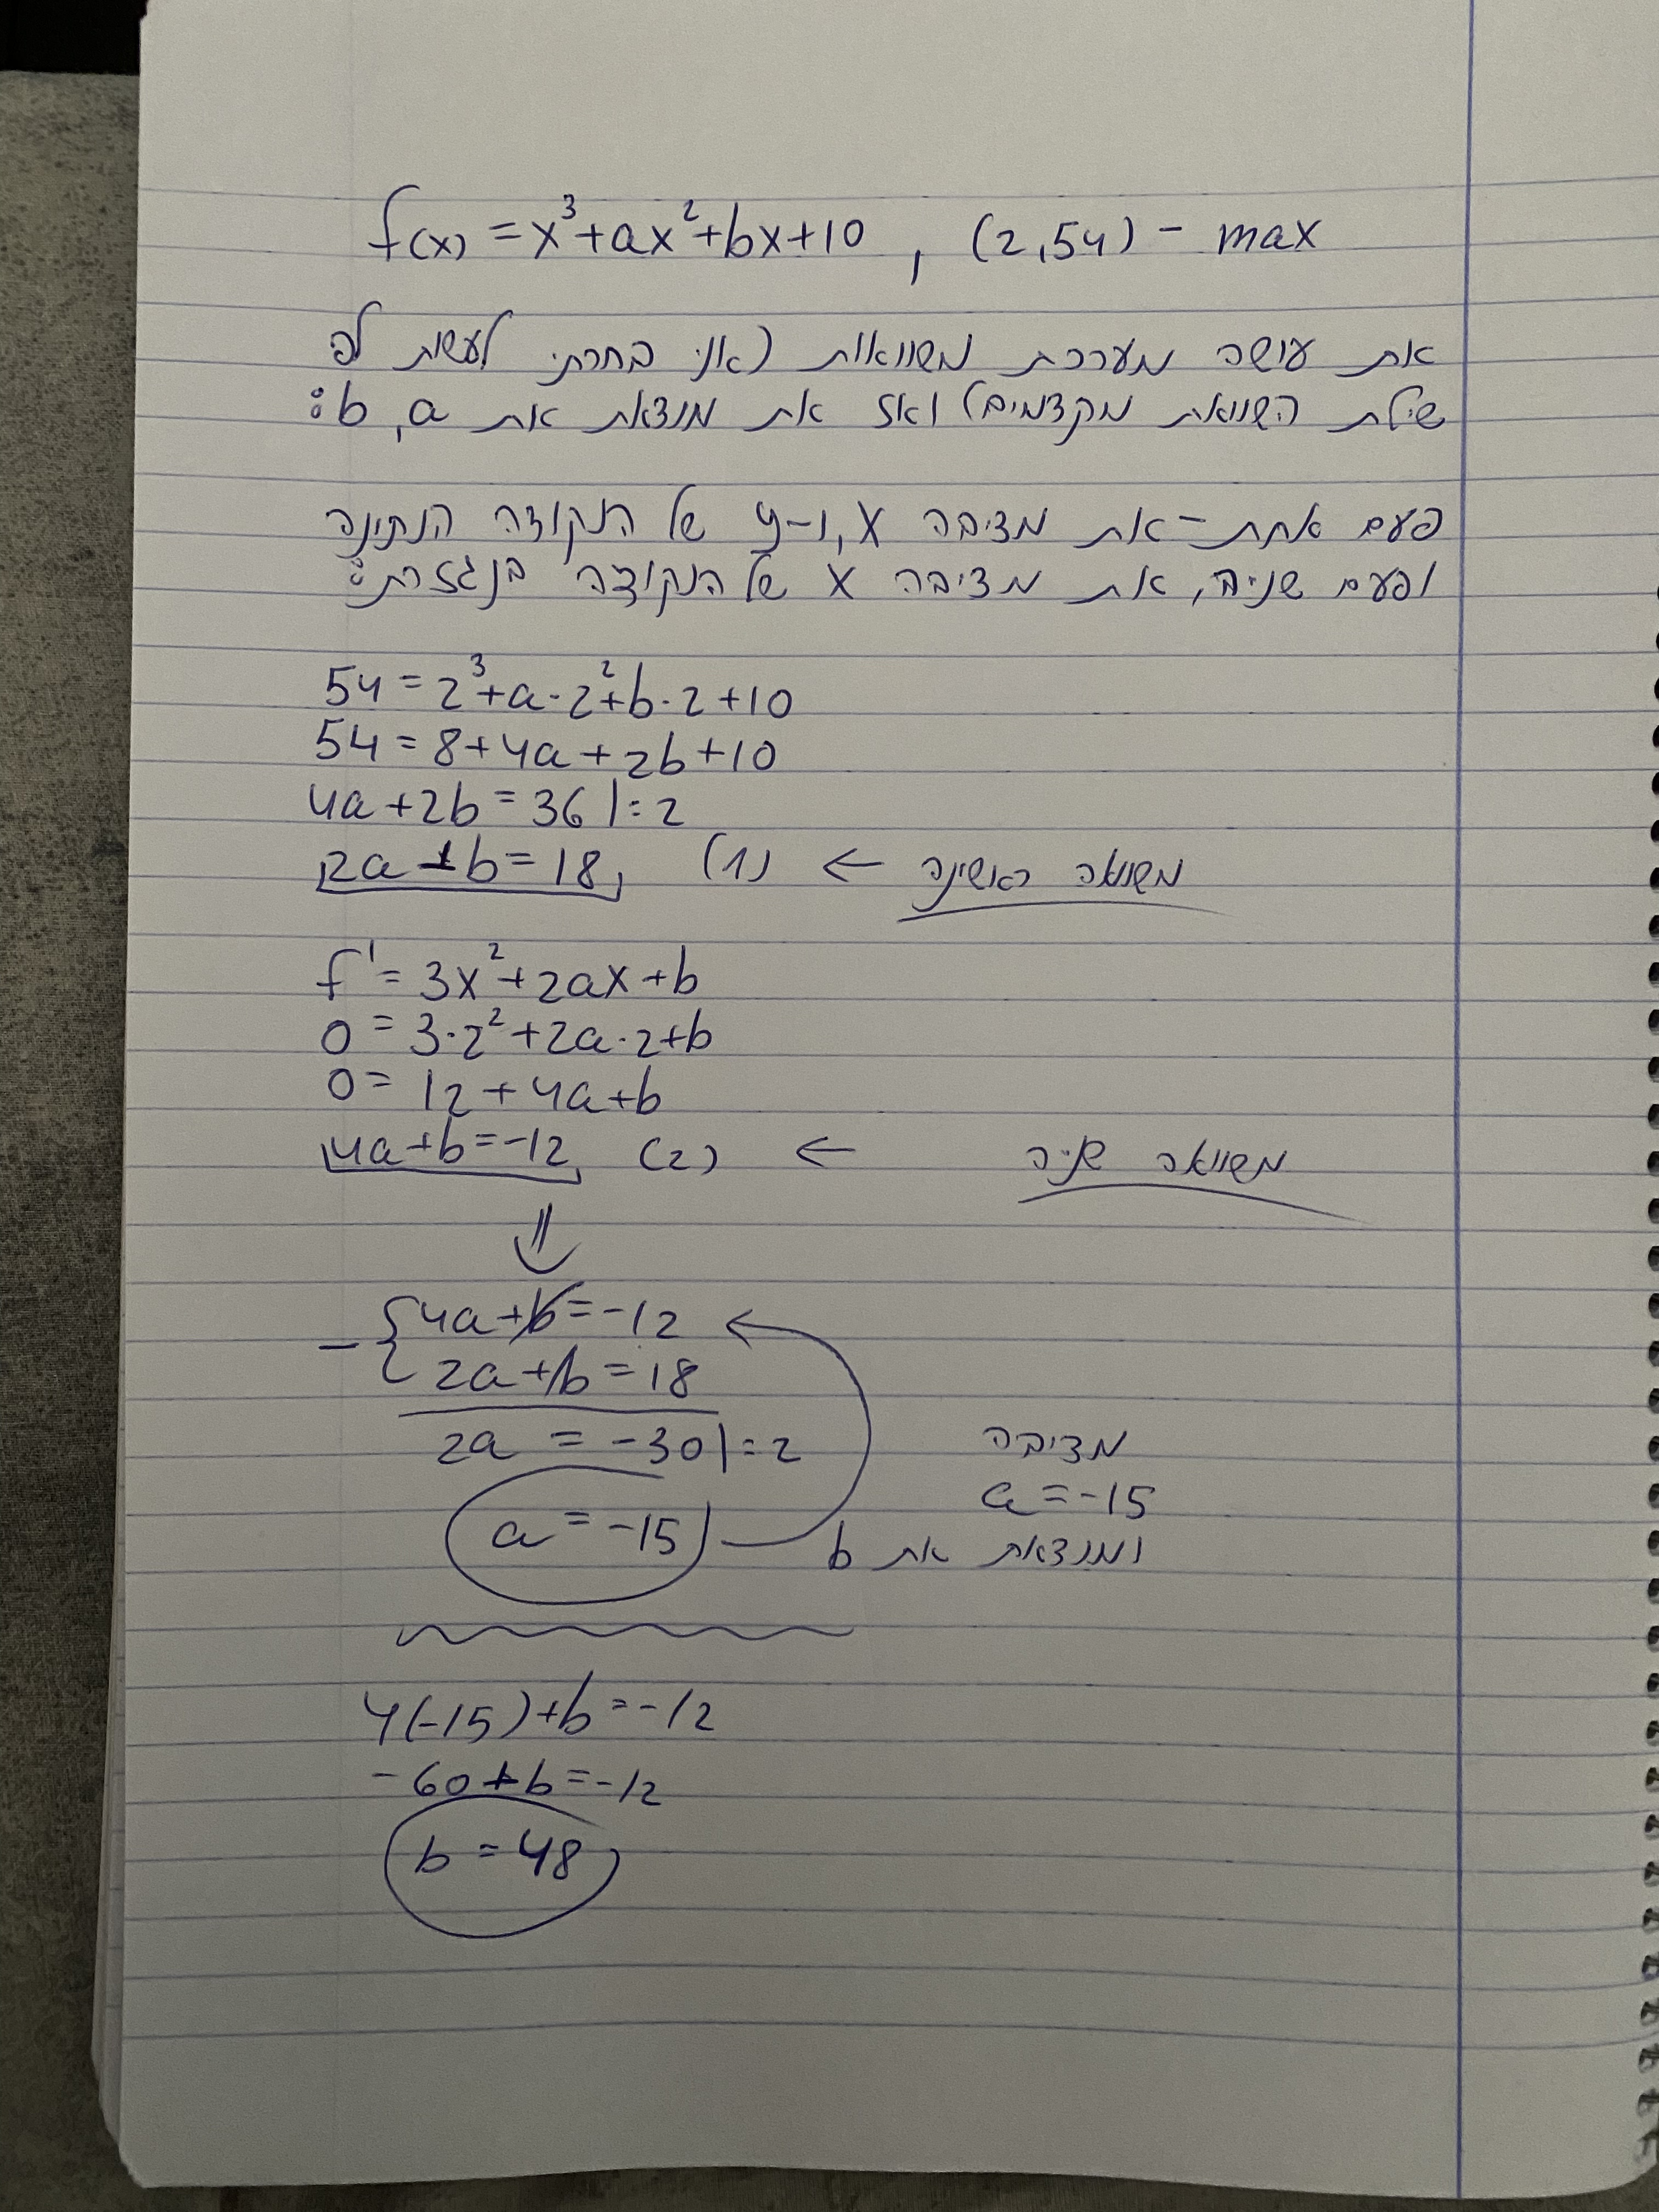 f(x) = x³+ax²+bx+10 , (2,54) - max
את עושה מערכת משוואות (אני בחרתי לעשות לפי
שיטת השוואת מקדמים) ואז את מוצאת את a, b:
פעם אחת - את מציבה x, ו-y של הנקודה הנתונה
ופעם שניה, את מציבה x של הנקודה בנגזרת:
54 = 2³+a·2²+b·2+10
54 = 8+4a+2b+10
4a+2b = 36 |:2
2a+b = 18 (1) ← משוואה ראשונה
f' = 3x²+2ax+b
0 = 3·2²+2a·2+b
0 = 12+4a+b
4a+b=-12 (2) ← משוואה שניה
⇓
- { 4a+b=-12
2a+b=18
2a = -30 |:2
a = -15
מציבה
a = -15
ומוצאת את b
4(-15)+b=-12
-60+b=-12
b = 48